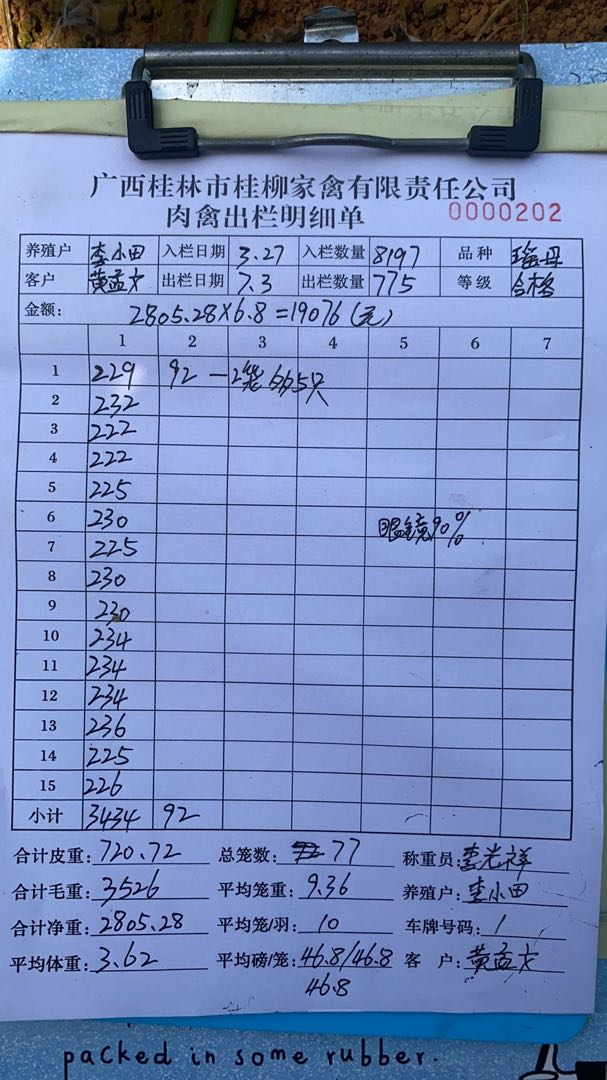 广西桂林市桂柳家禽有限责任公司
肉禽出栏明细单 0000202
养殖户 李小田 入栏日期 3.27 入栏数量 8197 品种 瑶母
客户 黄孟文 出栏日期 7.3 出栏数量 775 等级 合格
金额: 2805.28×6.8=19076(元)
1 2 3 4 5 6 7
1 229 92 一2笼 5只
2 232
3 222
4 222
5 225
6 230 眼镜90%
7 225
8 230
9 230
10 234
11 234
12 234
13 236
14 225
15 226
小计 3434 92
合计皮重: 720.72 总笼数: 77 称重员: 李光祥
合计毛重: 3526 平均笼重: 9.36 养殖户: 李小田
合计净重: 2805.28 平均笼/羽: 10 车牌号码: 1
平均体重: 3.62 平均磅/笼: 46.8/46.8 客户: 黄孟文
46.8
packed in some rubber.